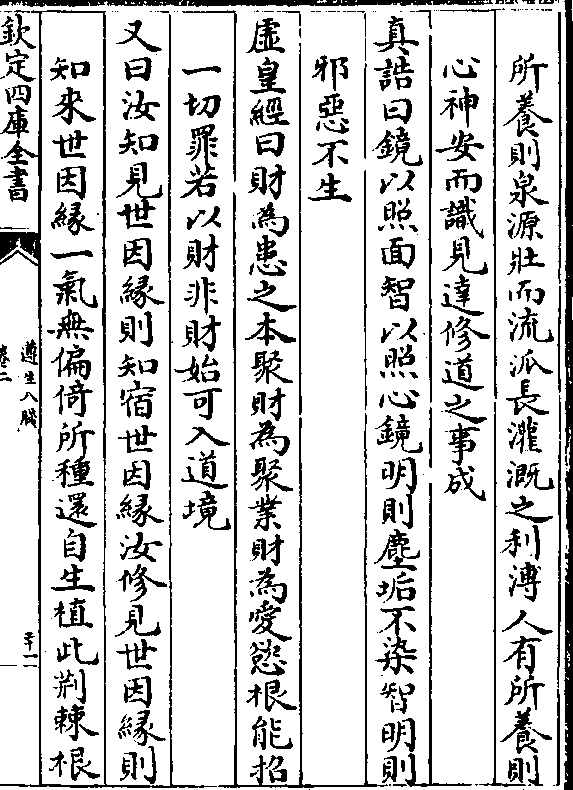 所養則泉源壯而流泒長灌溉之利溥人有所養則
心神安而識見達修道之事成
真誥曰鏡以照面智以照心鏡明則塵垢不染智明則
邪惡不生
虛皇經曰財為患之本聚財為聚業財為愛慾根能招
一切罪若以財非財始可入道境
又曰汝知見世因緣則知宿世因緣汝修見世因緣則
知來世因緣一氣無偏倚所種還自生植此荆棘根
欽定四庫全書
遵生八牋
卷二